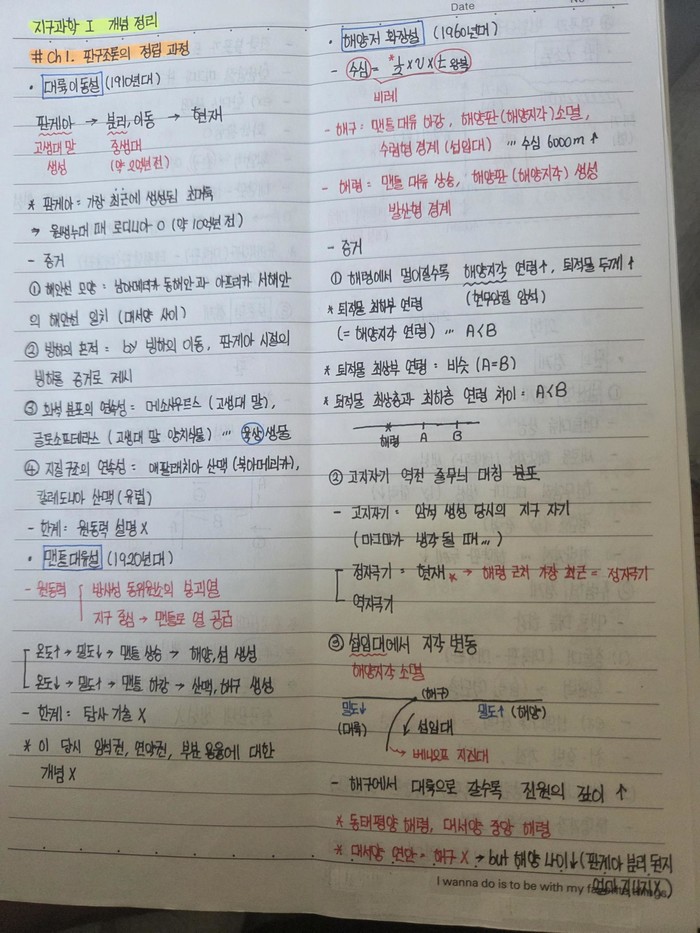 지구과학 I 개념 정리
# Ch 1. 판구조론의 정립 과정
· 대륙이동설 (1910년대)
판게아 → 분리, 이동 → 현재
고생대 말 중생대
생성 (약 2억년 전)
* 판게아 : 가장 최근에 생성된 초대륙
⇒ 원생누대 때 로디니아 O (약 10억년 전)
- 증거
① 해안선 모양 : 남아메리카 동해안과 아프리카 서해안
의 해안선 일치 (대서양 사이)
② 빙하의 흔적 : by 빙하의 이동, 판게아 시절의
빙하를 증거로 제시
③ 화석 분포의 연속성 : 메소사우르스 (고생대 말),
글로소프테리스 (고생대 말 양치식물) … 육상생물
④ 지질구조의 연속성 : 애팔래치아 산맥 (북아메리카),
칼레도니아 산맥 (유럽)
- 한계 : 원동력 설명 X
· 맨틀대류설 (1920년대)
- 원동력 방사성 동위원소의 붕괴열
지구 중심 → 맨틀로 열 공급
온도↑ → 밀도↓ → 맨틀 상승 → 해양, 섬 생성
온도↓ → 밀도↑ → 맨틀 하강 → 산맥, 해구 생성
- 한계 : 탐사 기술 X
* 이 당시 암석권, 연약권, 부분 용융에 대한
개념 X
Date
· 해양저 확장설 (1960년대)
- 수심 = * ½ × v × t 왕복
비례
- 해구 : 맨틀 대류 하강, 해양판 (해양지각) 소멸,
수렴형 경계 (섭입대) … 수심 6000m ↑
- 해령 : 맨틀 대류 상승, 해양판 (해양지각) 생성
발산형 경계
- 증거
① 해령에서 멀어질수록 해양지각 연령↑, 퇴적물 두께 ↑
* 퇴적물 최하부 연령 (현무암질 암석)
(= 해양지각 연령) … A<B
* 퇴적물 최상부 연령 : 비슷 (A=B)
* 퇴적물 최상층과 최하층 연령 차이 : A<B
해령 A B
② 고지자기 역전 줄무늬 대칭 분포
- 고지자기 : 암석 생성 당시의 지구 자기
(마그마가 냉각 될 때 …)
정자극기 = 현재 * → 해령 근처 가장 최근 = 정자극기
역자극기
③ 섭입대에서 지각 변동
해양지각 소멸
(해구)
밀도↓ 밀도↑ (해양)
(대륙) 섭입대
→ 베니오프 지진대
- 해구에서 대륙으로 갈수록 진원의 깊이 ↑
* 동태평양 해령, 대서양 중앙 해령
* 대서양 연단 = 해구 X → but 해양 나이↓ (판게아 분리 된지
얼마 지나지 X)
I wanna do is to be with my